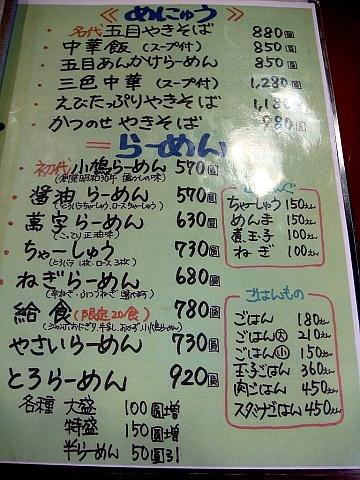 《めにゅう》
・名代五目やきそば 880圓
・中華飯(スープ付) 850圓
・五目あんかけらーめん 850圓
・三色中華(スープ付) 1,280圓
・えびたっぷりやきそば 1,180
・かつのせやきそば 980圓
=らーめん=
・初代小鳩らーめん 570圓
醤油らーめん 570圓
萬字らーめん 630圓
(こってり正油味)
ちゃーしゅう 730圓
ねぎらーめん 680圓
給食(限定20食) 780圓
やさいらーめん 730圓
とろらーめん 920圓
各種 大盛 100圓増
特盛 150圓増
半らーめん 50圓引
ちゃーしゅう 150えん
めんま 150えん
煮玉子 100えん
ねぎ 100えん
ごはんもの
ごはん 180えん
ごはん(大) 210えん
ごはん(小) 150えん
玉子ごはん 360えん
肉ごはん 450えん
スタミナごはん 450えん